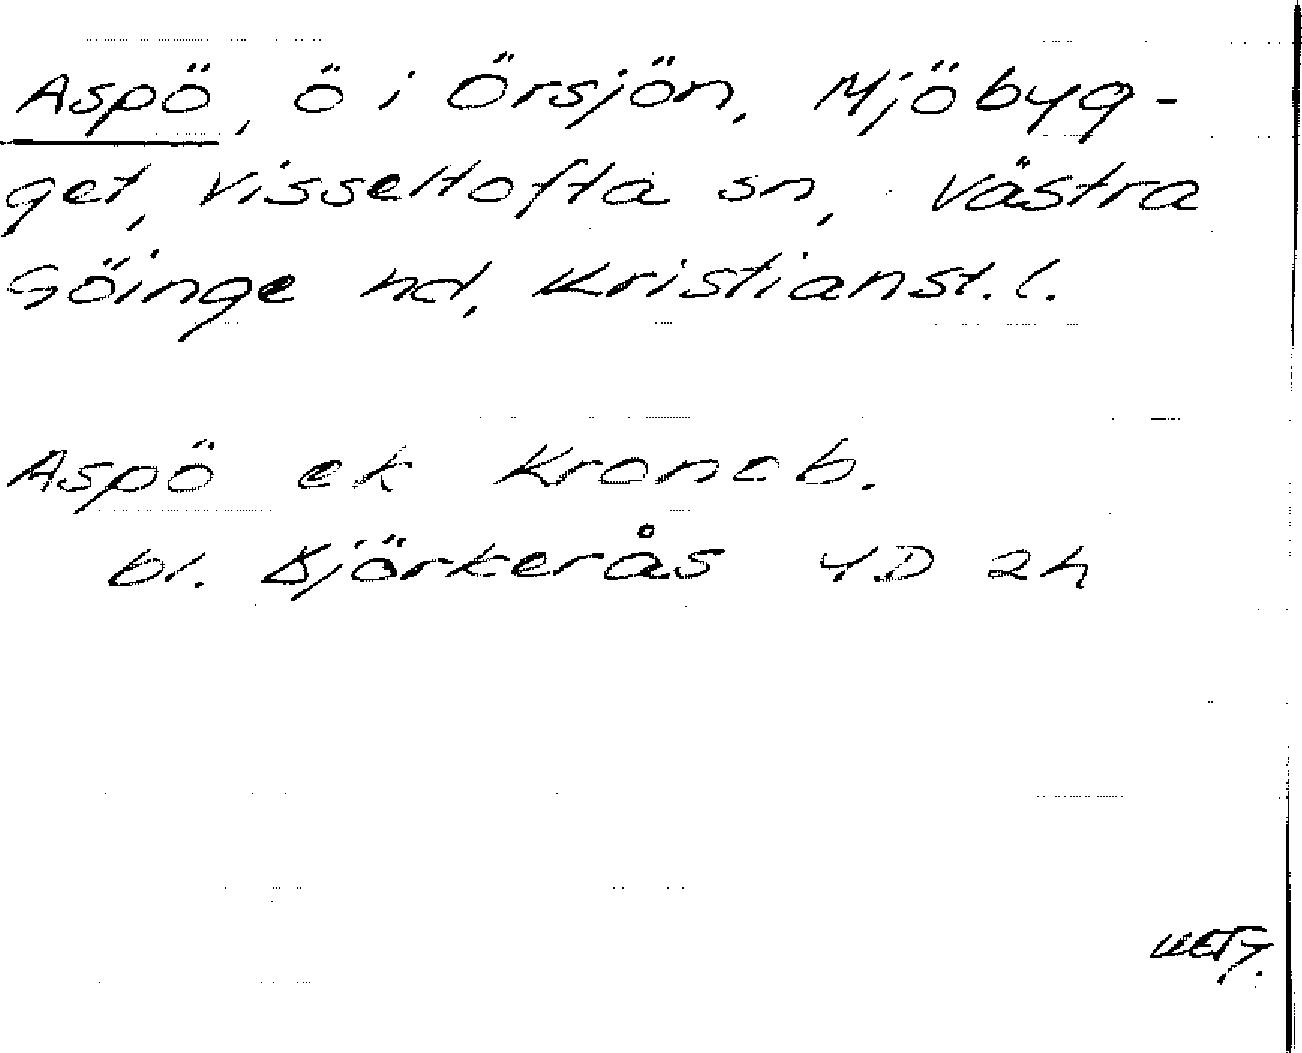 Aspö, ö i Örsjön, Mjöbyg-
get, Visseltofta sn, Västra
Göinge hd, Kristianst. l.
Aspö ek Kronob.
bl. Björkerås 4D 2h